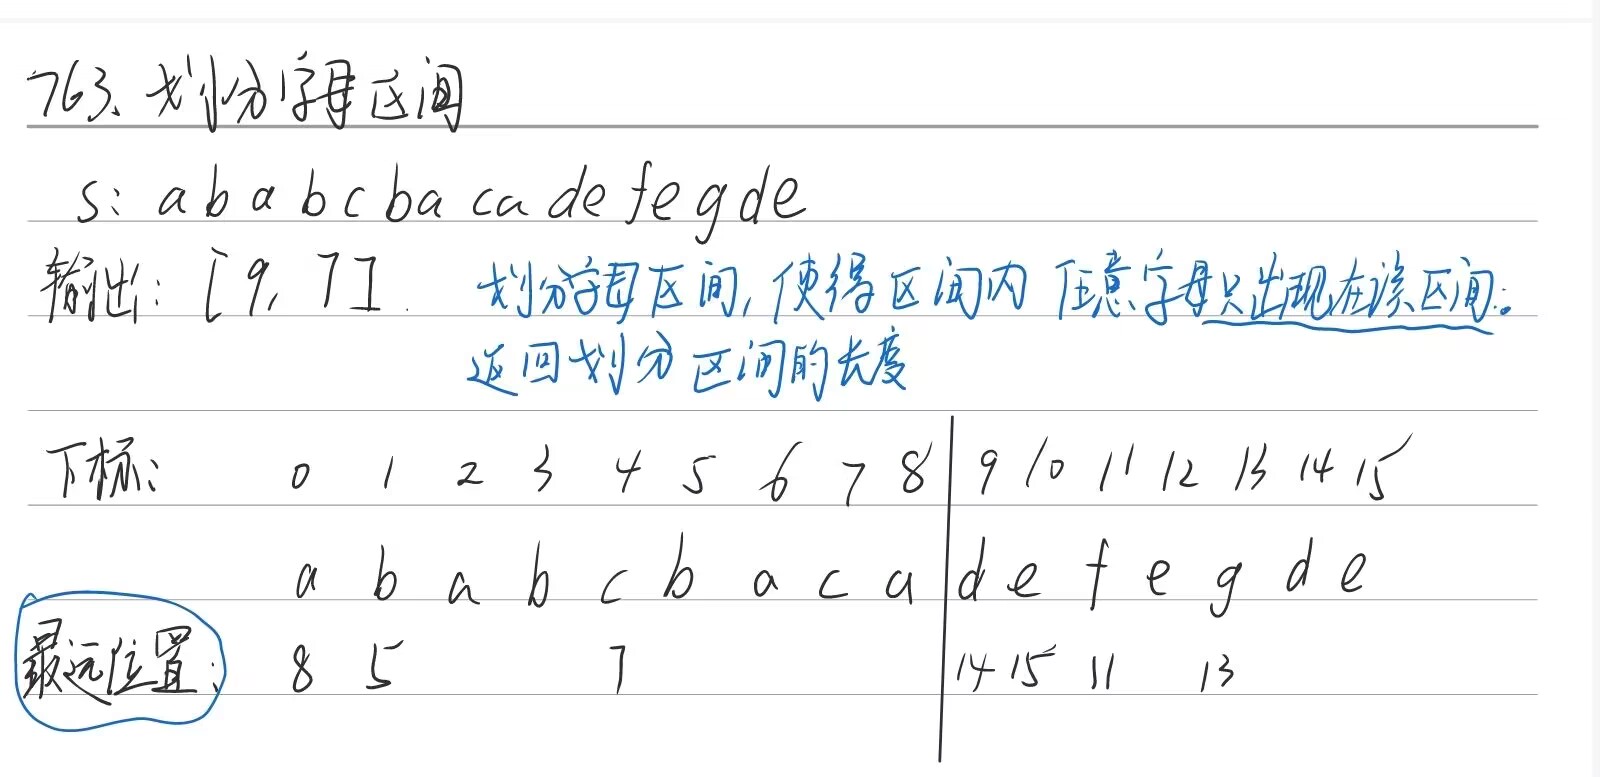 763、划分字母区间
s: ababcbacadefegde
输出: [9, 7]. 划分字母区间,使得区间内 任意字母只出现在该区间。
返回划分区间的长度
下标: 0 1 2 3 4 5 6 7 8 9 10 11 12 13 14 15
a b a b c b a c a d e f e g d e
最远位置: 8 5 7 14 15 11 13